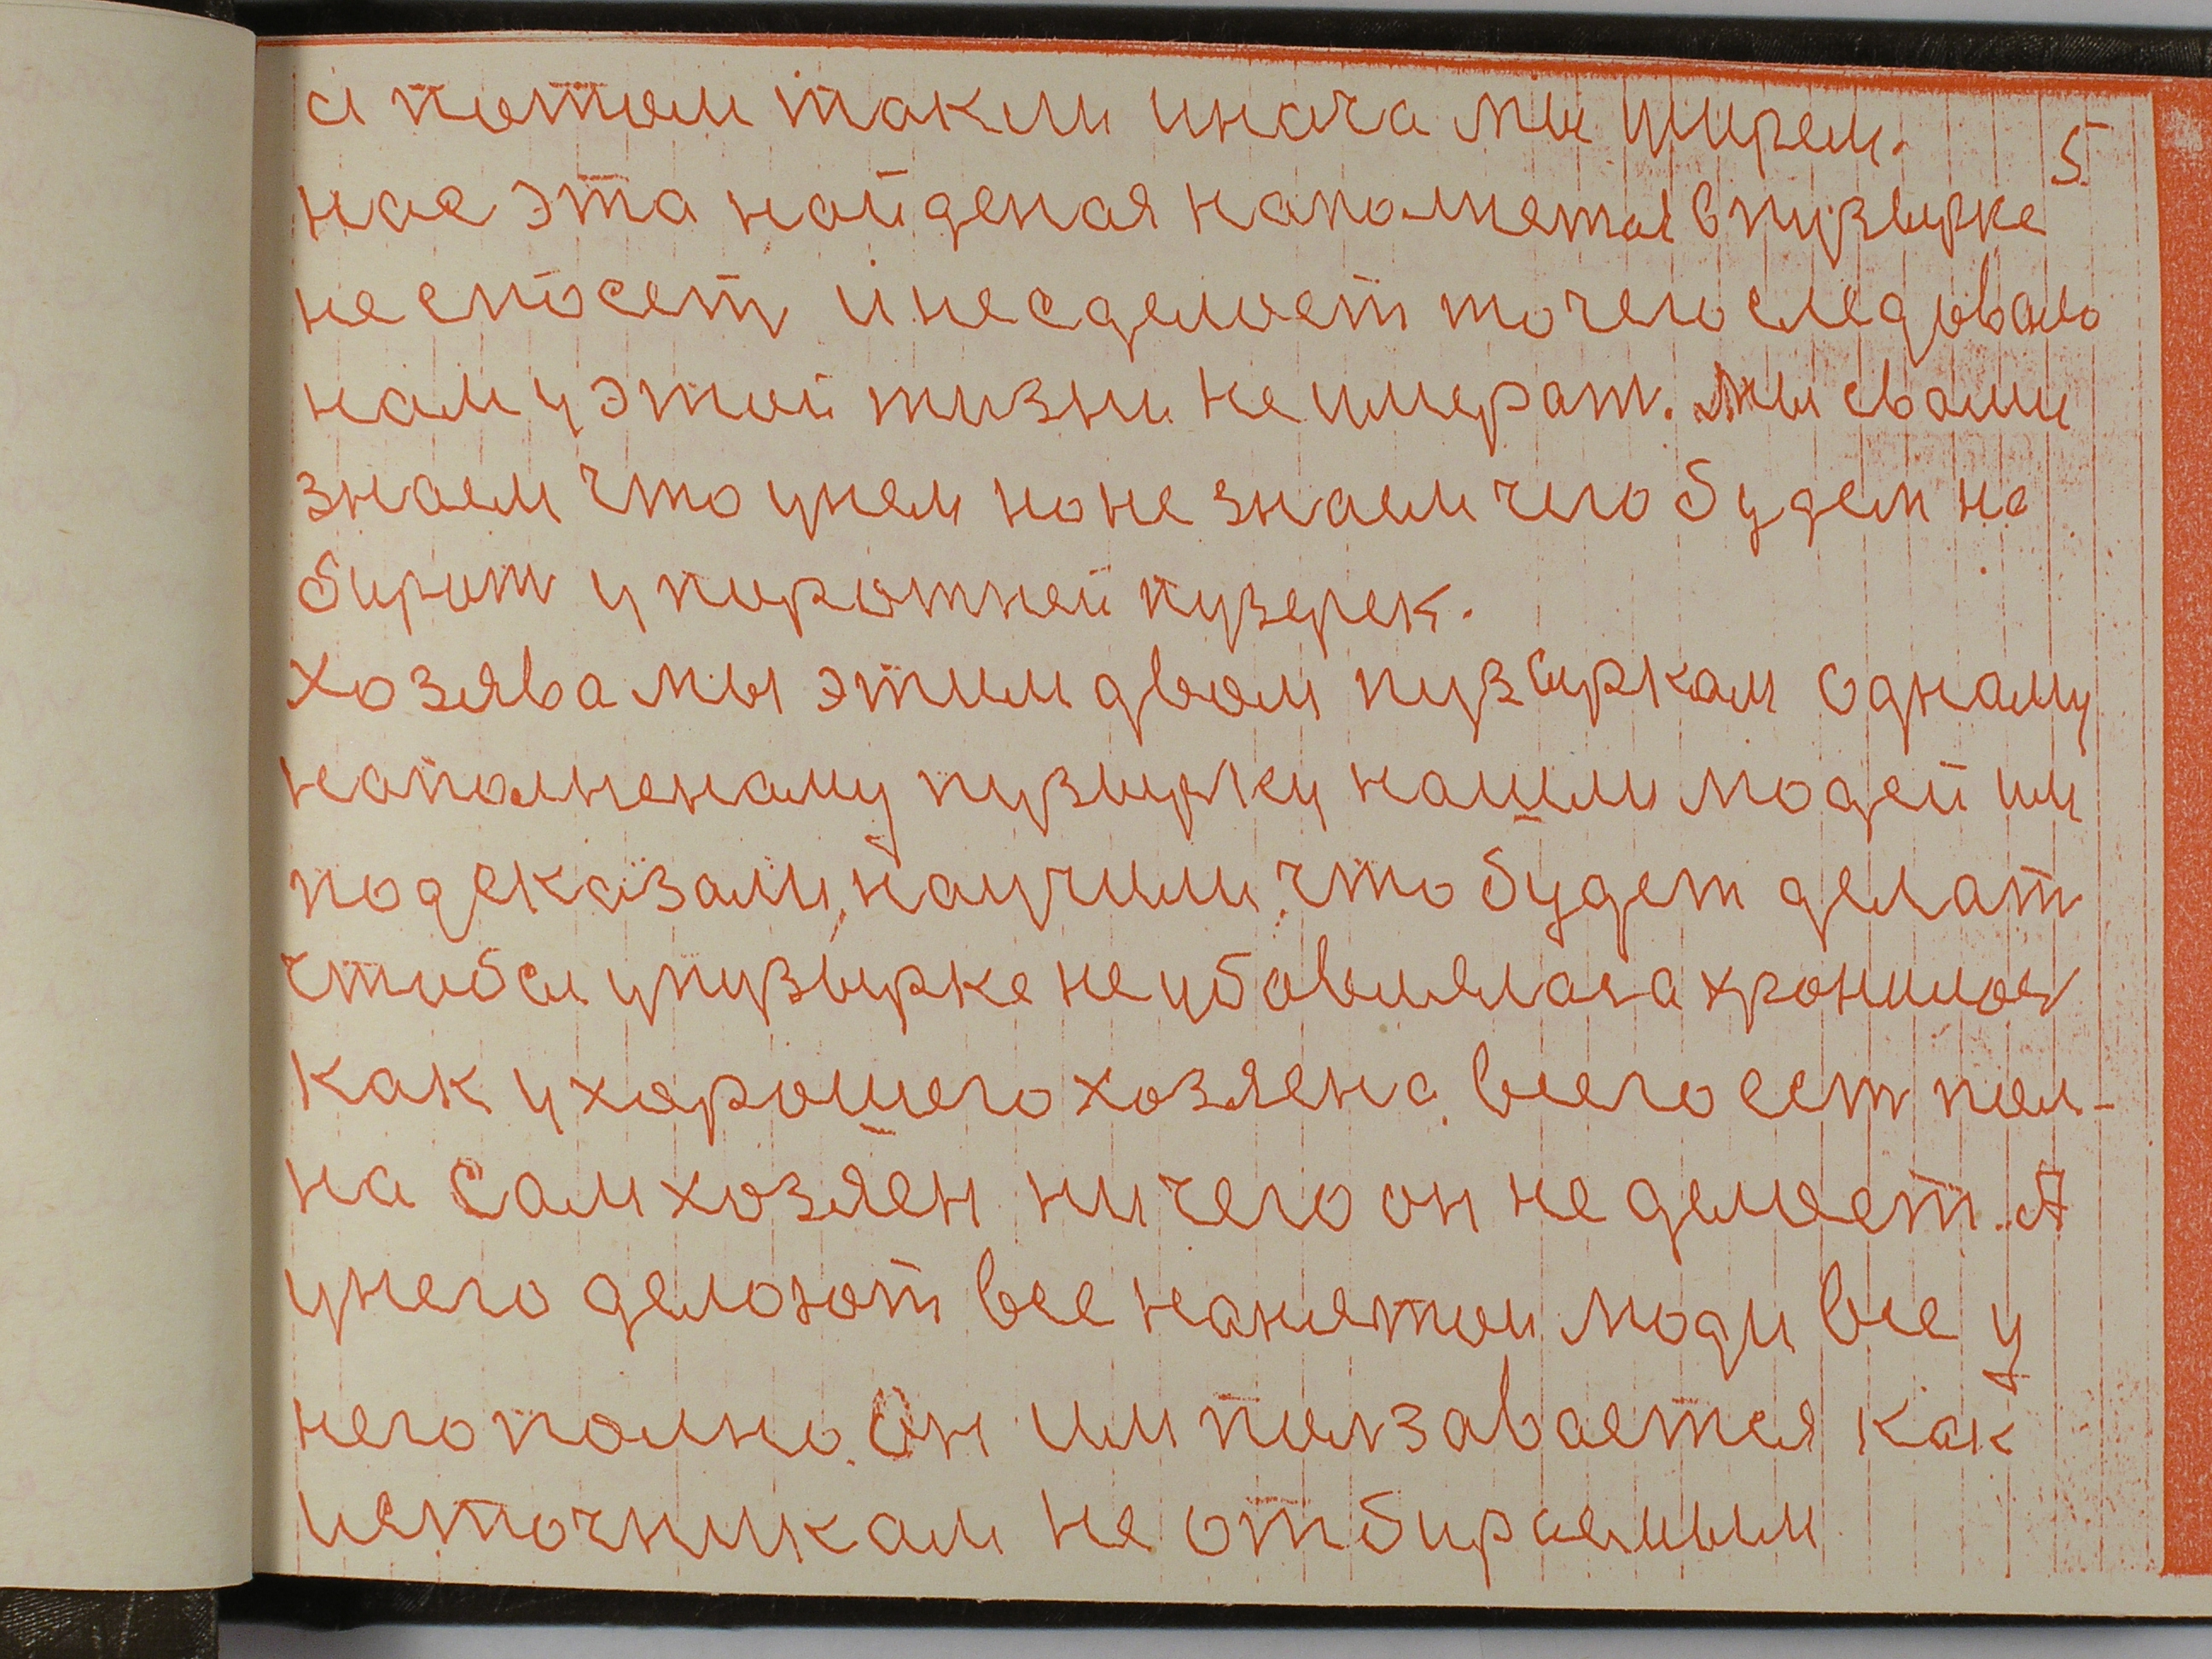 а потом такли иначa мы умрем.
5
нас эта найденая наполнетая в пузырке
не спосет и не сделает то чего следовало
нам у этой жизни не умерат. Мы с вами
знаем что у нем но не знаем чего будем на
бират у порожней пузерек.
хозява мы этим двом пузыркам одному
наполненаму пузырку нашли людей им
подсказали, научили, что будет делат
чтобы у пузырке не убовлялася а хронилося
как у хорошего хозяена всего ест пол-
на Сам хозяен ничего он не делоет. А
у него делоют все нанятои люди все у
него полно. Он имползаваетса как
источником не отбираемым